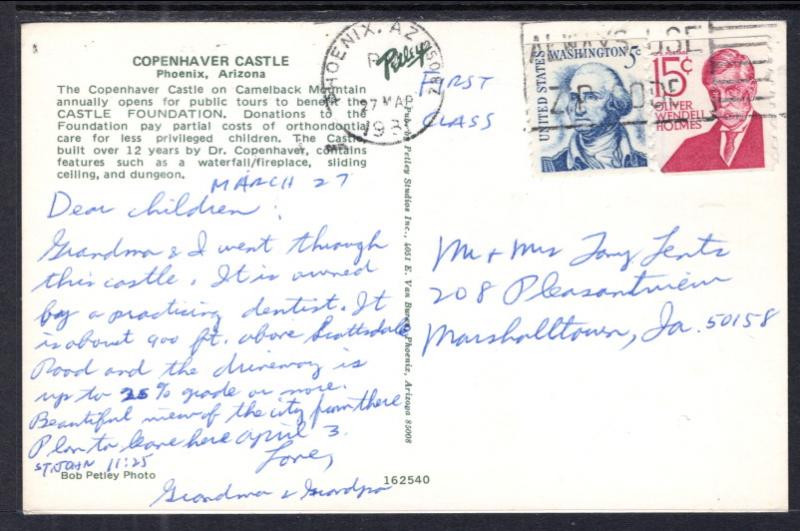 COPENHAVER CASTLE
Phoenix, Arizona
The Copenhaver Castle on Camelback Mountain
annually opens for public tours to benefit the
CASTLE FOUNDATION. Donations to the
Foundation pay partial costs of orthodontial
care for less privileged children. The Castle,
built over 12 years by Dr. Copenhaver, contains
features such as a waterfall/fireplace, sliding
ceiling, and dungeon.
MARCH 27
Dear Children:
Grandma & I went through
this castle. It is owned
by a practicing dentist. It
is about 900 ft. above Scottsdale
Road and the driveway is
up to 25% grade or more.
Beautiful view of the city from there
Plan to leave here April 3.
ST. JOHN 11:25
Love,
Grandma & Grandpa
Bob Petley Photo
162540
Petley
PHOENIX, AZ
27 MAR
Petley Studios Inc., 4051 E. Van Buren, Phoenix, Arizona 85008
FIRST
CLASS
ALWAYS USE
ZIP CODE
UNITED STATES
WASHINGTON 5c
15¢
OLIVER
WENDELL
HOLMES
Mr & Mrs Tony Lentz
208 Pleasantview
Marshalltown, Ia. 50158